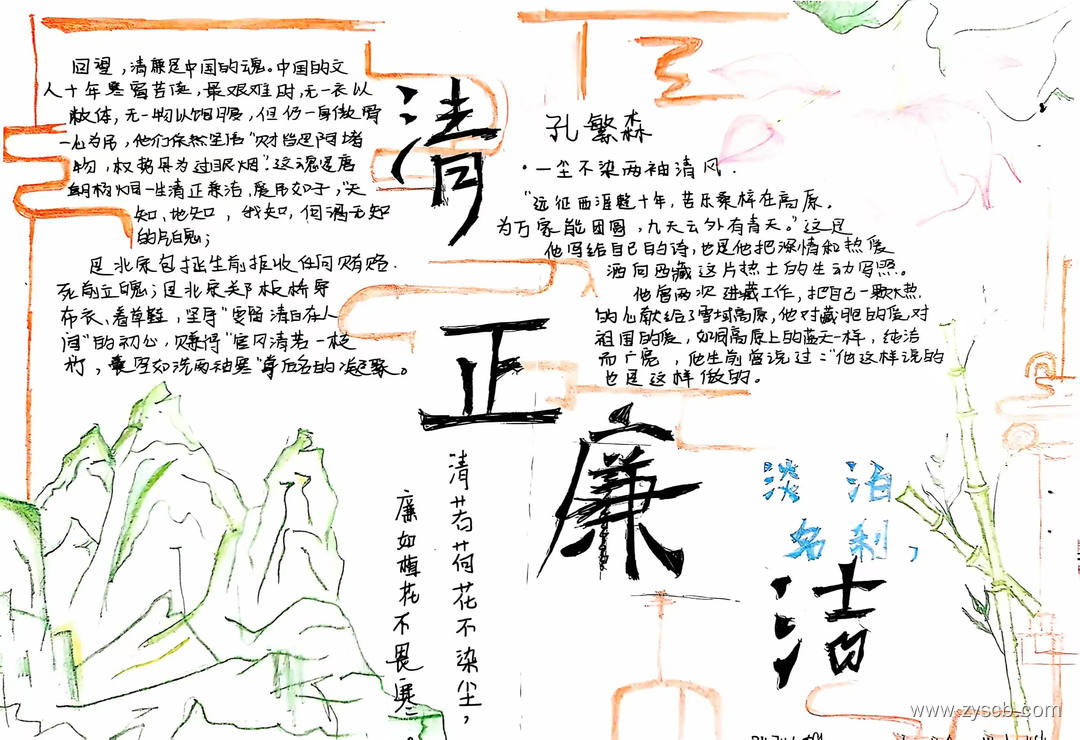 回望，清廉是中国的魂。中国的文
人十年寒窗苦读，最艰难时，无一衣以
蔽体，无一物以饱腹，但仍一身傲骨
一心为民，他们依然坚信"财档是阿堵
物，权势具为过眼烟"。这魂是唐
朝构烟一生清正廉洁，屡用如于，"天
知、地知，我知，何谓无知
的片魄；
是北宋包拯生前拒收任何贿赂.
死前立魄；是北宋关阝板桥穿
布衣、着草鞋，坚守"要留清白在人
间"的初心，赚得"官风清若一枝
竹，囊如洗两袖寒"身后名的凝聚。
清
正
廉
洁
清若荷花不染尘，
廉如植花不畏寒
孔繁森
·一尘不染两袖清风.
"远征西涯整十年，苦乐桑梓在高原。
为万家能团圆，九天云外有青天。"这是
他写给自己的诗，也是他把深情和热爱
洒向西藏这片热土的生动写照。
他曾两次进藏工作，把自己一颗火热
的心献给了雪域高原，他对藏胞的爱，对
祖国的爱，如同高原上的蓝天一样，纯洁
而广宽，他生前曾说过："他这样说的
也是这样做的。
淡泊
名利，
www.zyseb.com